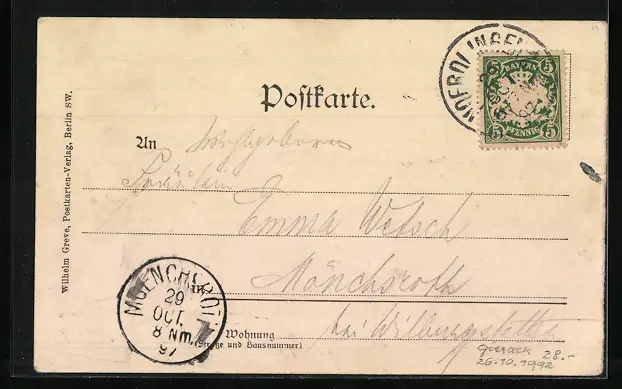 NOERDLINGEN
5 BAYERN 5
5 PFENNIG 5
Postkarte.
An Wohlgeboren
Fräulein
Emma Wetsch
in Mönchsroth
Wohnung bei Wilburgstetten
(Straße und Hausnummer)
MOENCHSROTH
29
OCT.
8 Nm.
97
28.-
26.10.1992
Wilhelm Greve, Postkarten-Verlag, Berlin SW.